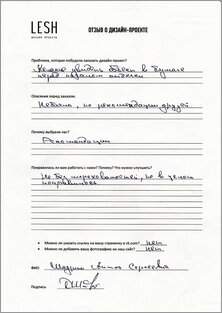 LESH
ДИЗАЙН ПРОЕКТЫ
ОТЗЫВ О ДИЗАЙН-ПРОЕКТЕ
Проблема, которая побудила заказать дизайн-проект?
Желание увидеть объект в бумаге
перед началом отделки
Опасения перед заказом.
Небыло, по рекомендации друзей
Почему выбрали нас?
Рекомендации
Понравилось ли вам работать с нами? Почему? Что нужно улучшить?
Не без шероховатостей, но в целом
понравилось.
• Можно ли указать ссылку на вашу страничку в vk.com? нет
• Можно ли добавить вашу фотографию на наш сайт? нет
ФИО: Сергеевна
Подпись